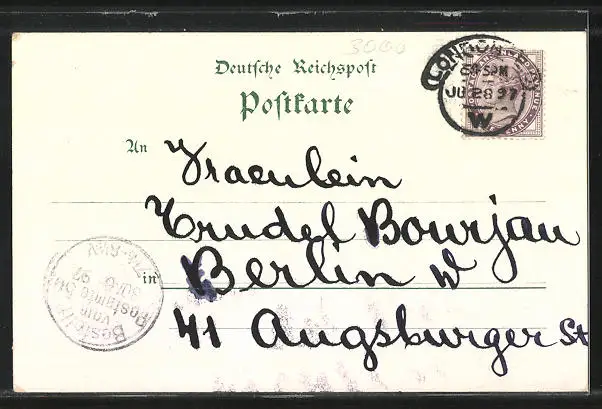 3000
Deutsche Reichspost
Postkarte
LONDON
JU 28 97
W
An
Fraeulein
Trudel Bourjau
in
Berlin W
41 Augsburger St
Bestellt
vom
Postamte 50
30/6 97